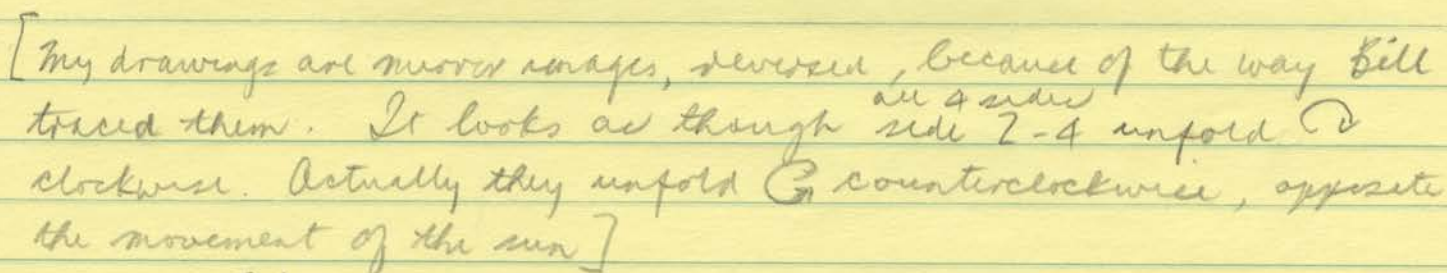 [My drawings are mirror images, reversed, because of the way Bill
all 4 sides
traced them. It looks as though side 2-4 unfold
clockwise. Actually they unfold counterclockwise, opposite
the movement of the sun]